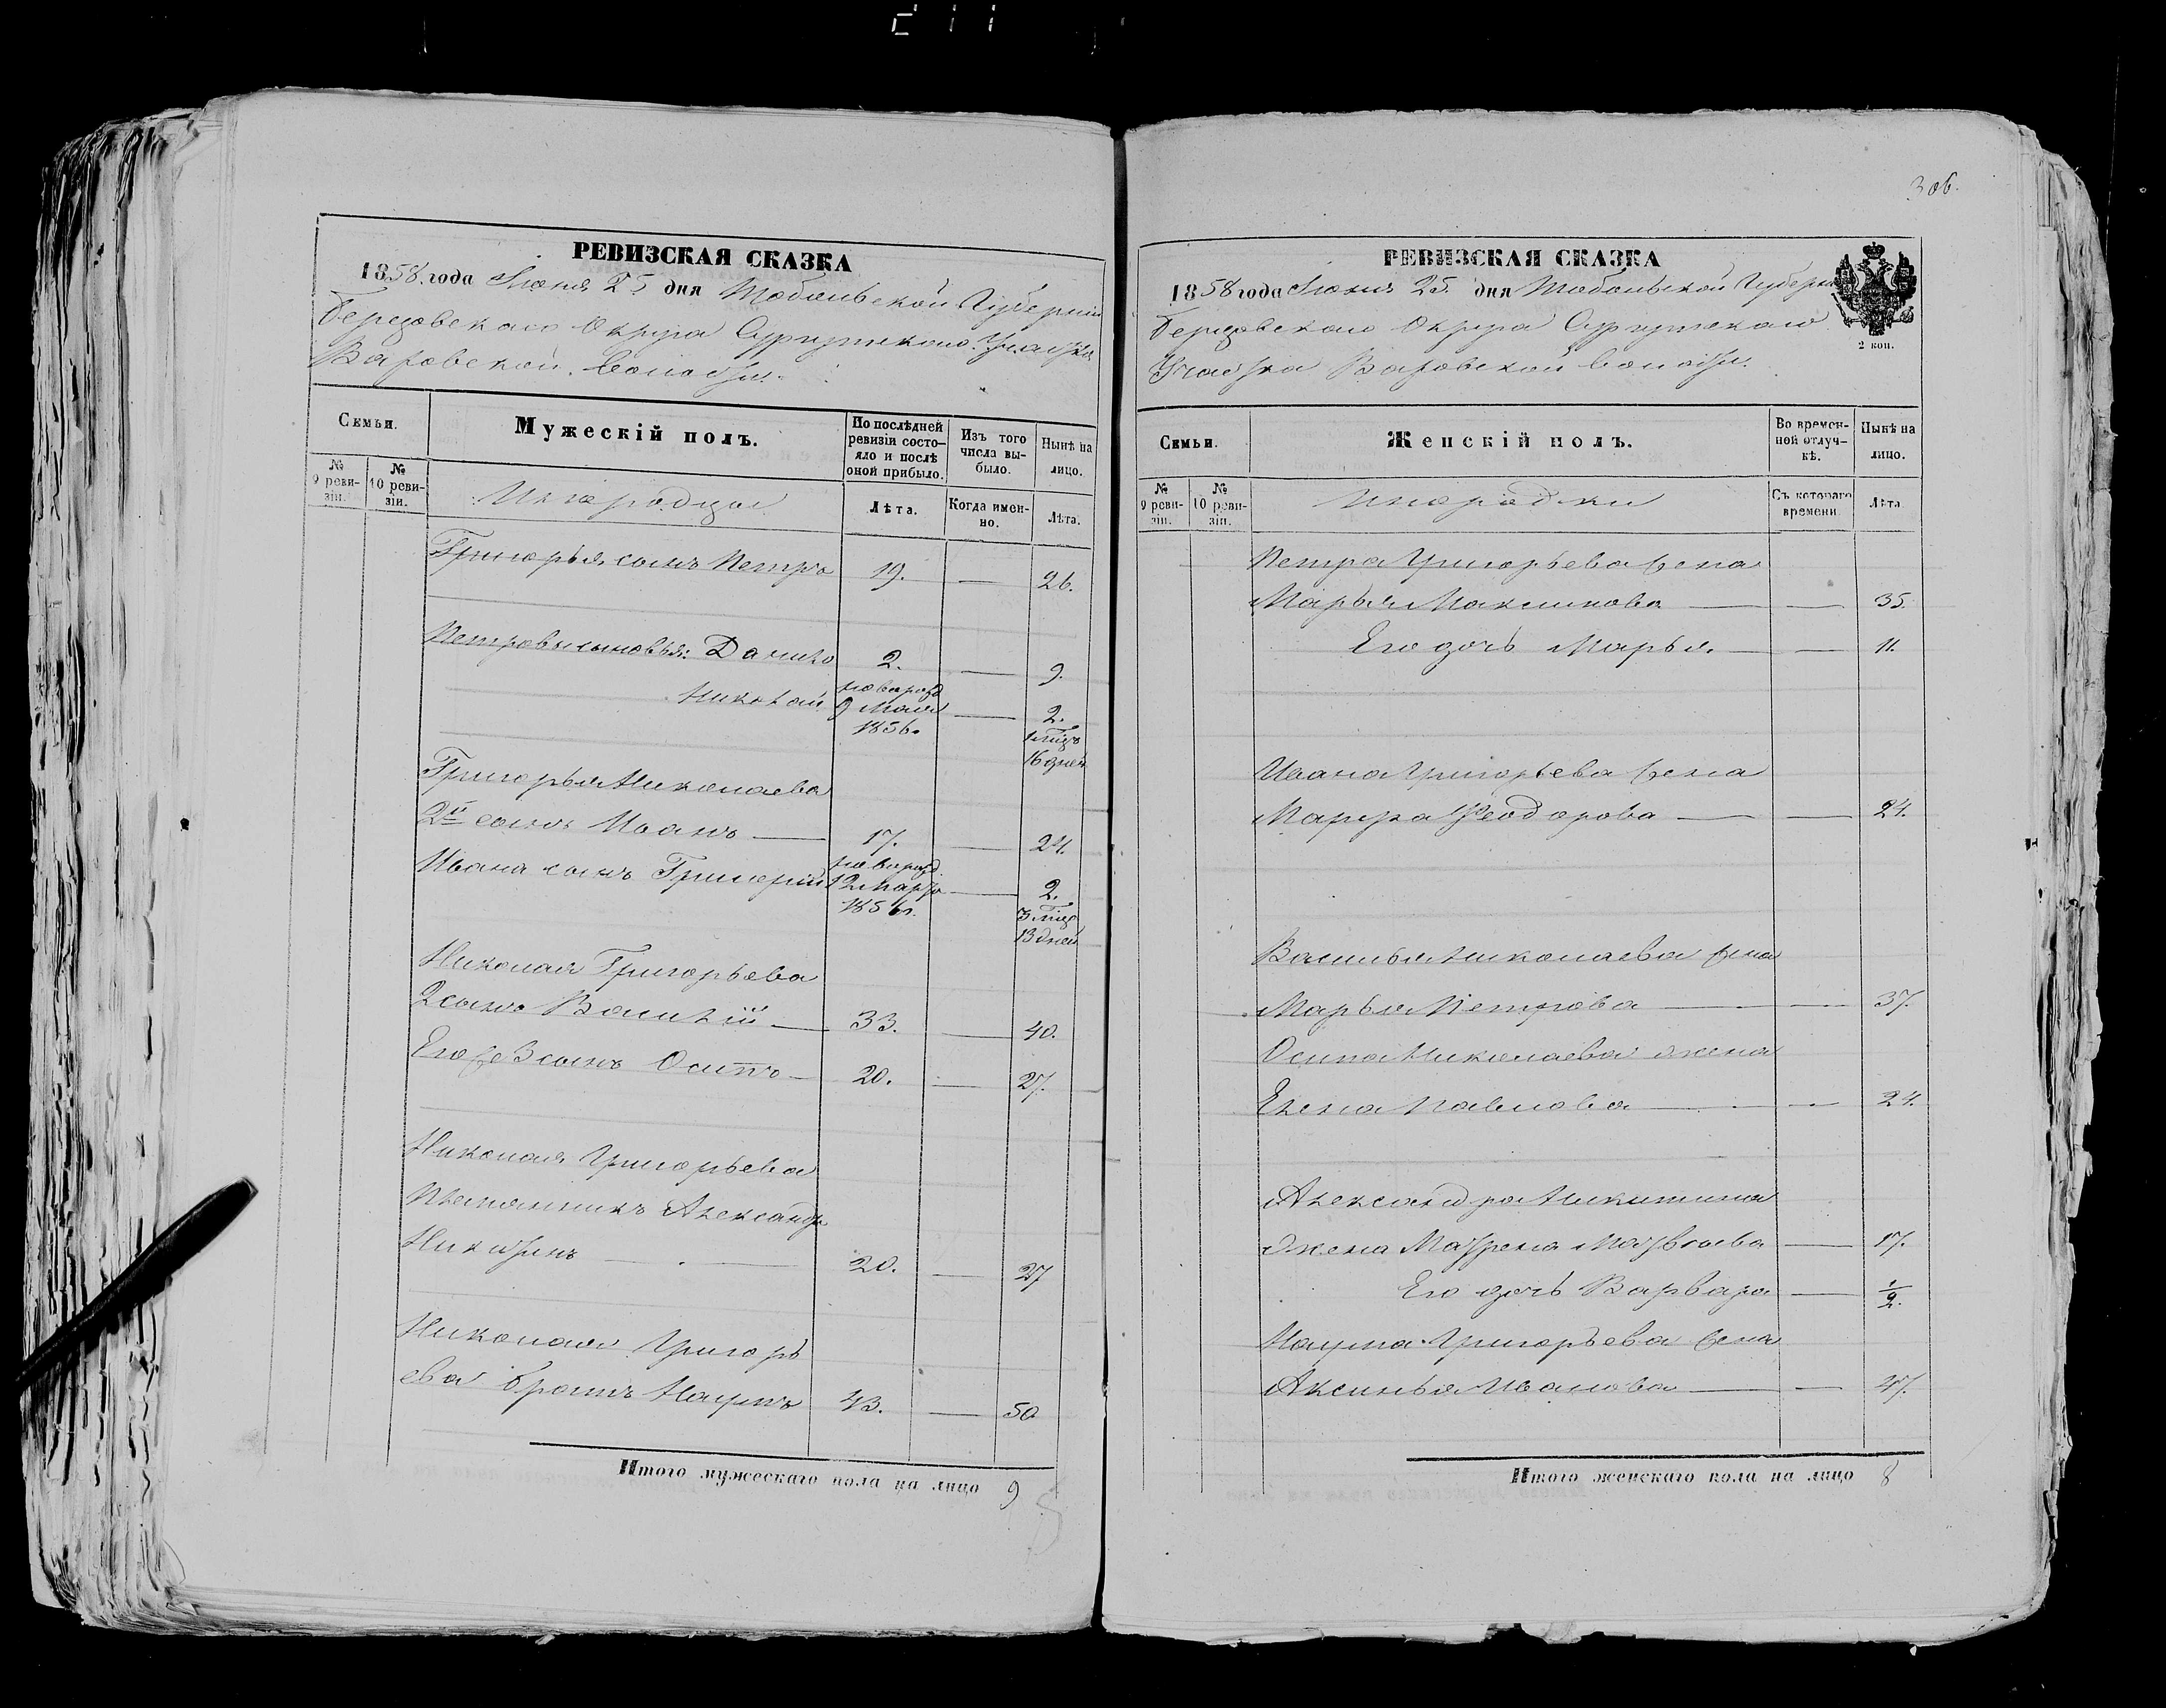 3 об.
РЕВИЗСКАЯ СКАЗКА
1858 года Июня 25 дня Тобольской Губерніи
Березовскаго Округа Сургутскаго Участка
Ваховской Волости.
Семьи.
Мужескій полъ.
По послѣдней ревизіи состо-яло и послѣ оной прибыло.
Изъ того числа вы-было.
Нынѣ на лицо.
№ 9 реви-зіи.
№ 10 реви-зіи.
Инородцы
Лѣта.
Когда имен-но.
Лѣта.
Григорья сынъ Петръ 19. — 26.
Петровы сыновья: Данило 2. — 9.
Николай новорожд. 9 Маія 1856. — 2. 1 мѣсц. 16 дней
Григорья Николаева
2й сынъ Иванъ — 17. — 24.
Ивана сынъ Григорій новорожд. 12 Марта 1856 г. — 2. 3 мѣсц. 13 дней
Николая Григорьева
2 сынъ Василій — 33. — 40.
Его же 3 сынъ Осипъ — 20. — 27.
Николая Григорьева
Племянникъ Александръ
Никитинъ — 20. — 27
Николая Григорь
ева братъ Наумъ 43. — 50
Итого мужескаго пола на лицо 9
РЕВИЗСКАЯ СКАЗКА
1858 года Июня 25. дня Тобольской Губерніи
Березовскаго Округа Сургутскаго
Участка Ваховской Волости.
2 коп.
Семьи.
Женскій полъ.
Во времен-ной отлуч-кѣ.
Нынѣ на лицо.
№ 9 реви-зіи.
№ 10 реви-зіи.
Инородки
Съ котораго времени.
Лѣта.
Петра Григорьева жена
Марья Максимова — — 35.
Его дочь Марья — — 11.
Ивана Григорьева жена
Марфа Феодорова — — 24.
Василья Николаева жена
Марья Петрова — — 37.
Осипа Николаева жена
Елена Павлова — — 24.
Александра Никитина
жена Матрена Матвѣева — 17.
Его дочь Варвара — 1/2.
Наума Григорьева жена
Аксинья Иванова — — 47.
Итого женскаго пола на лицо 8